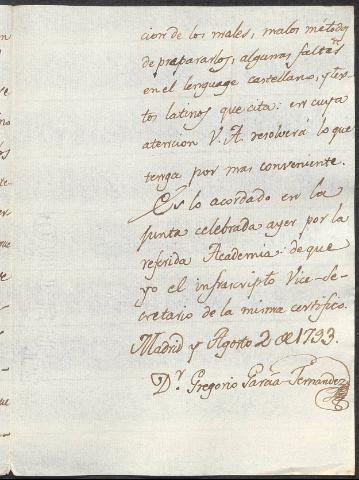 cion de los males, malos métodos
de prepararlos, algunas faltas
en el lenguage castellano, y tex-
tos latinos que cita: en cuya
atencion V. A. resolverá lo que
tenga por mas conveniente.
Es lo acordado en la
Junta celebrada ayer por la
referida Academia: de que
yo el infrascripto Vice-Se-
cretario de la misma certifico.
Madrid y Agosto 2 de 1793.
Dr. Gregorio Garcia-Fernandez